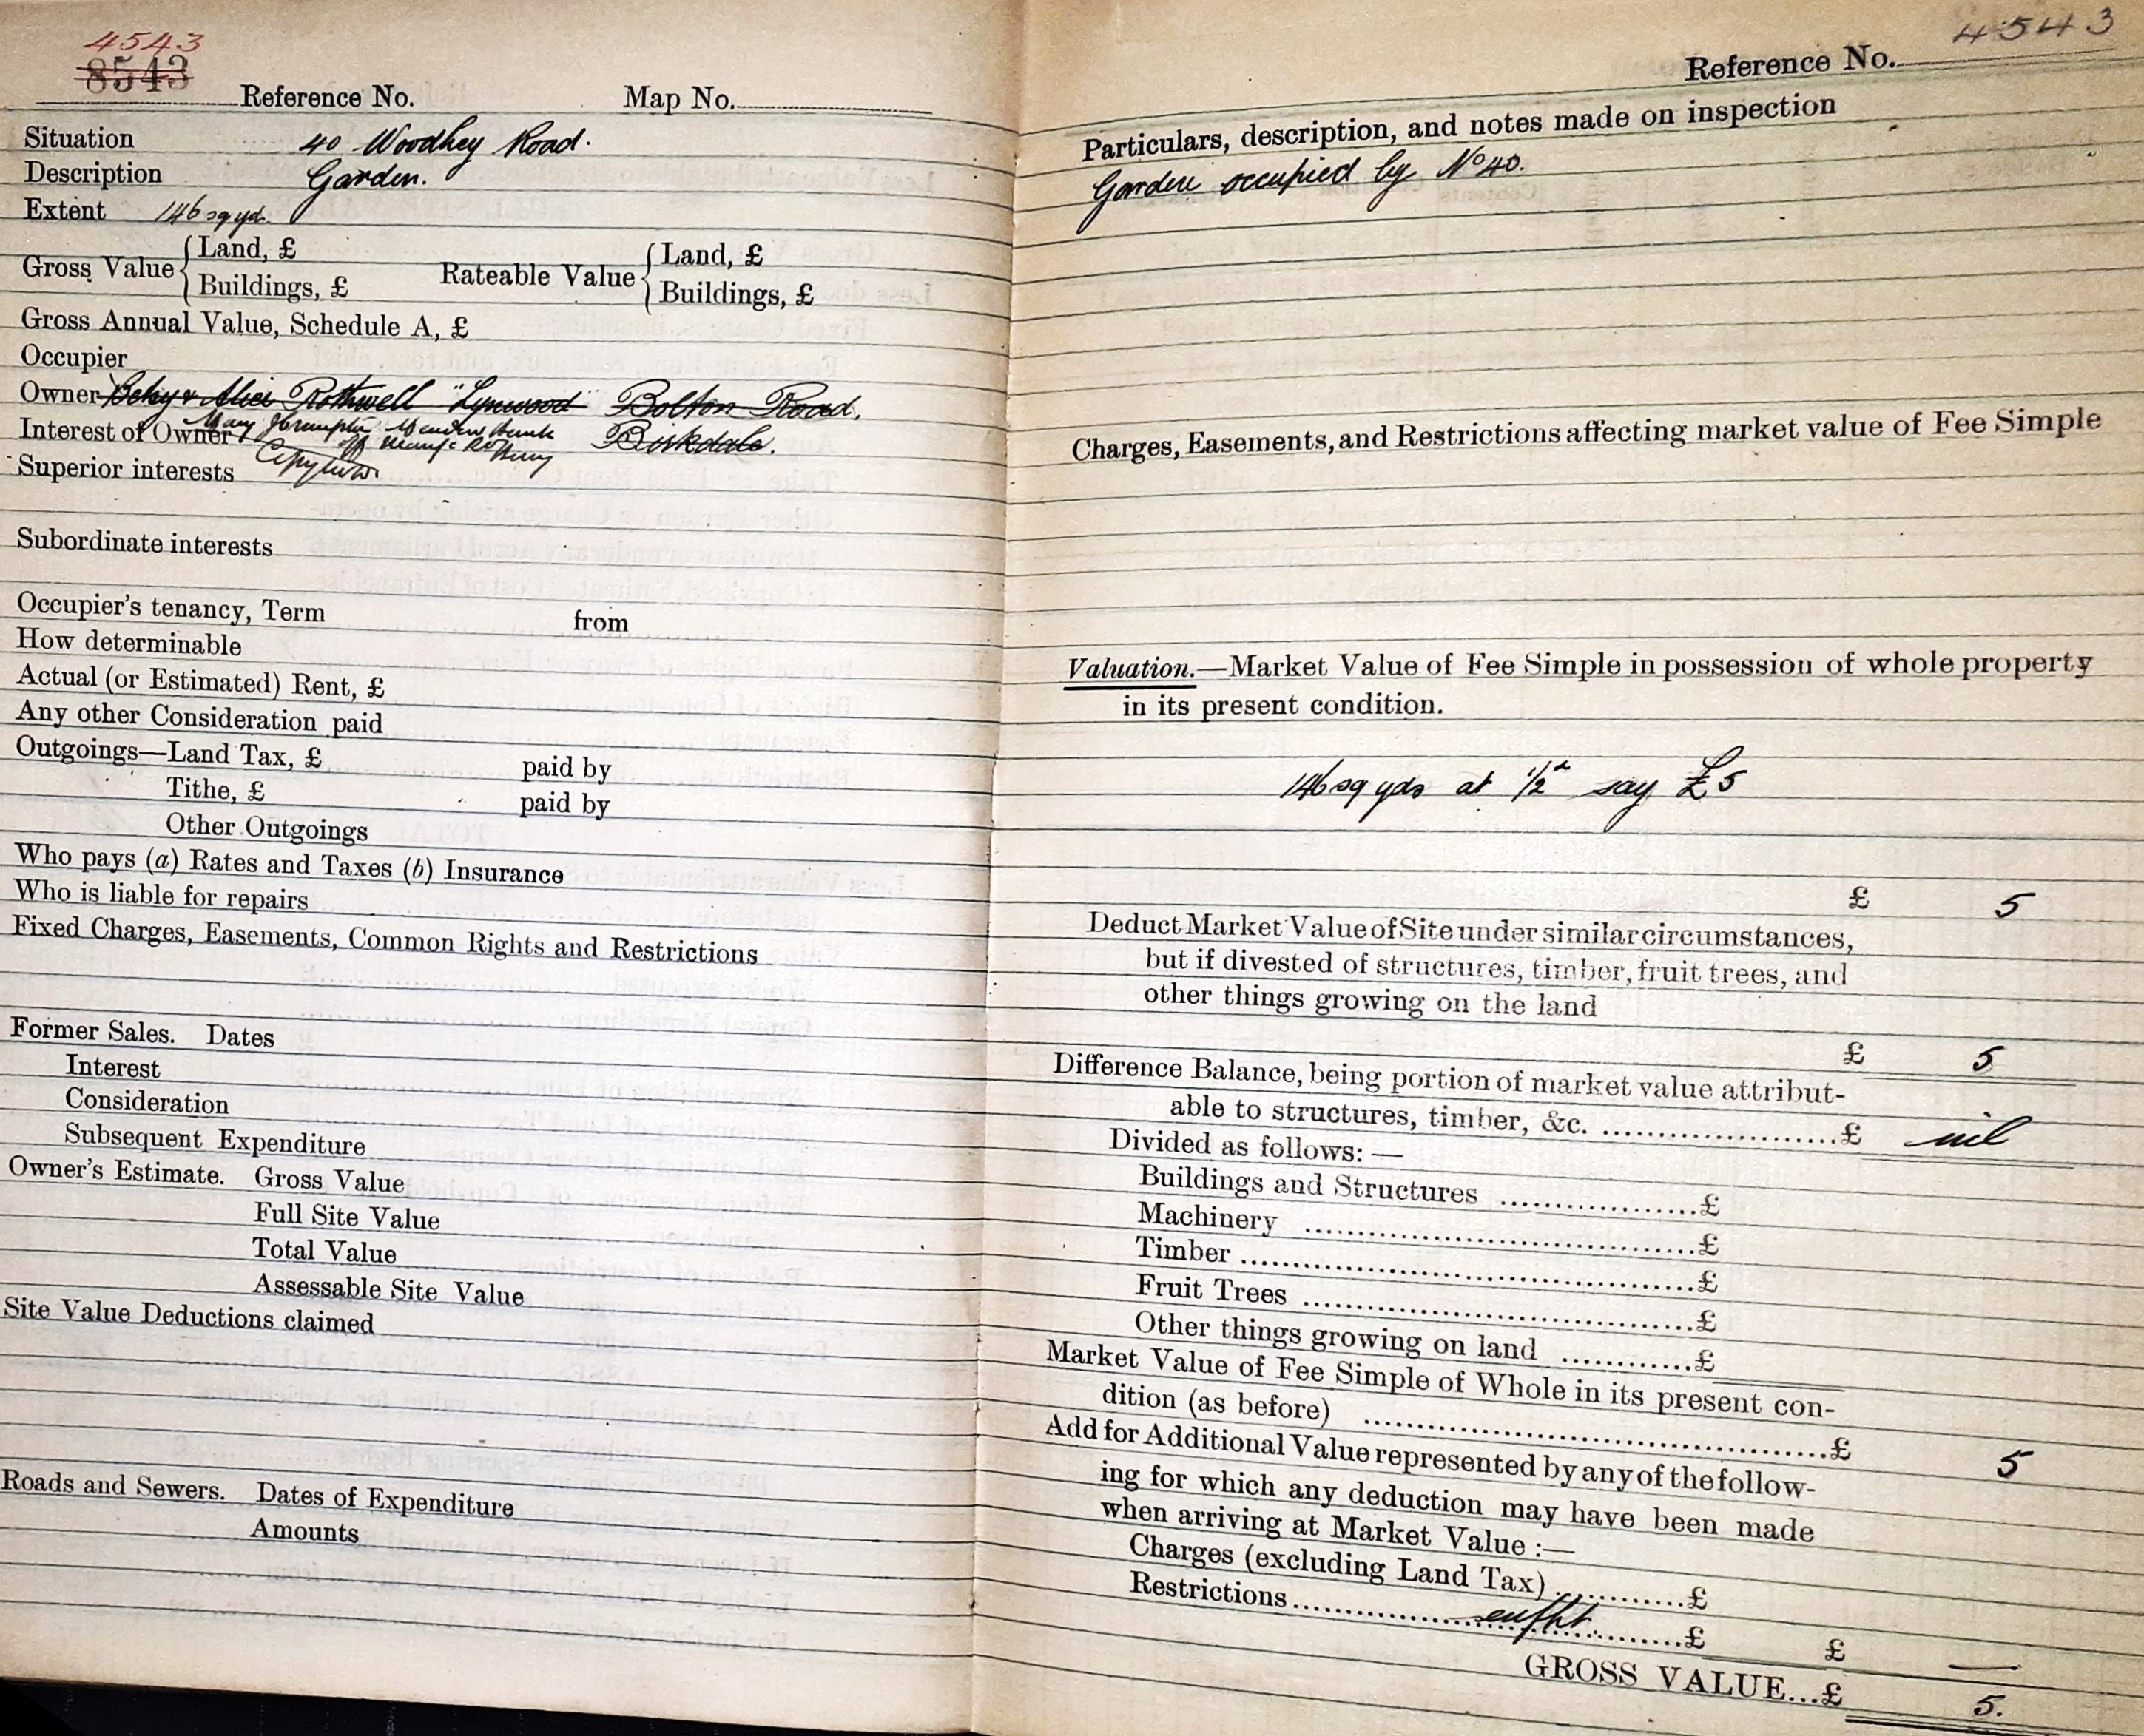 4543
8543
Reference No. Map No.
Situation 40 Woodhey Road.
Description Garden.
Extent 146 sq yd.
Gross Value { Land, £ Rateable Value { Land, £
Buildings, £ Buildings, £
Gross Annual Value, Schedule A, £
Occupier
Owner Betsy & Alice Rothwell "Lynwood" Bolton Road,
Mary
Interest of Owner Birkdale.
Superior interests
Subordinate interests
Occupier's tenancy, Term from
How determinable
Actual (or Estimated) Rent, £
Any other Consideration paid
Outgoings—Land Tax, £ paid by
Tithe, £ paid by
Other Outgoings
Who pays (a) Rates and Taxes (b) Insurance
Who is liable for repairs
Fixed Charges, Easements, Common Rights and Restrictions
Former Sales. Dates
Interest
Consideration
Subsequent Expenditure
Owner's Estimate. Gross Value
Full Site Value
Total Value
Assessable Site Value
Site Value Deductions claimed
Roads and Sewers. Dates of Expenditure
Amounts
Reference No. 4543
Particulars, description, and notes made on inspection
Garden occupied by No 40.
Charges, Easements, and Restrictions affecting market value of Fee Simple
Valuation.—Market Value of Fee Simple in possession of whole property
in its present condition.
146 sq yds at 1/2d say £5
£ 5
Deduct Market Value of Site under similar circumstances,
but if divested of structures, timber, fruit trees, and
other things growing on the land
£ 5
Difference Balance, being portion of market value attribut-
able to structures, timber, &c. ....................£ nil
Divided as follows:—
Buildings and Structures ..................£
Machinery ..................£
Timber ..................£
Fruit Trees ..................£
Other things growing on land ............£
Market Value of Fee Simple of Whole in its present con-
dition (as before) ..................£ 5
Add for Additional Value represented by any of the follow-
ing for which any deduction may have been made
when arriving at Market Value :—
Charges (excluding Land Tax) ............£
Restrictions ..................£ £ —
GROSS VALUE...£ 5.